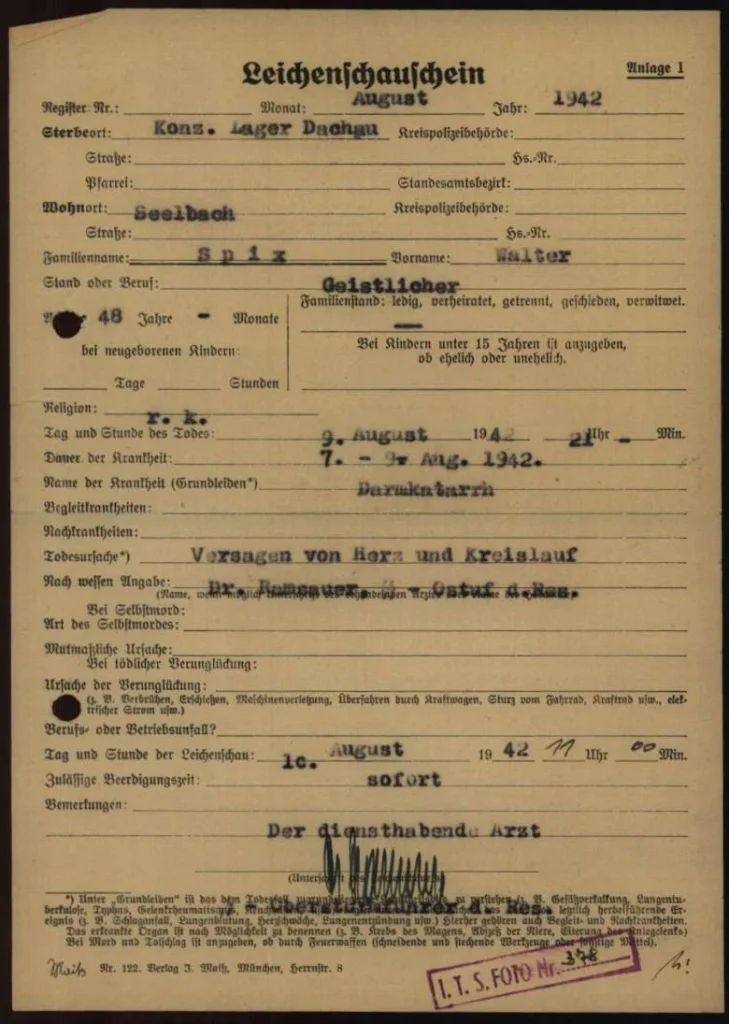 Leichenschauschein
Anlage 1
Register Nr.: Monat: August Jahr: 1942
Sterbeort: Konz. Lager Dachau Kreispolizeibehörde:
Straße: Hs.-Nr.
Pfarrei: Standesamtsbezirk:
Wohnort: Seelbach Kreispolizeibehörde:
Straße: Hs.-Nr.
Familienname: Spix Vorname: Walter
Stand oder Beruf: Geistlicher
Familienstand: ledig, verheiratet, getrennt, geschieden, verwitwet.
48 Jahre - Monate —
bei neugeborenen Kindern: Bei Kindern unter 15 Jahren ist anzugeben,
ob ehelich oder unehelich.
Tage Stunden
Religion: r. k.
Tag und Stunde des Todes: 9. August 1942 21 Uhr - Min.
Dauer der Krankheit: 7. - 9. Aug. 1942.
Name der Krankheit (Grundleiden*) Darmkatarrh
Begleitkrankheiten:
Nachkrankheiten:
Todesursache*) Versagen von Herz und Kreislauf
Nach wessen Angabe: Dr. Ramsauer, - Ostuf d.Res.
(Name, wenn möglich Unterschrift des behandelnden Arztes
Bei Selbstmord:
Art des Selbstmordes:
Mutmaßliche Ursache:
Bei tödlicher Verunglückung:
Ursache der Verunglückung:
(z. B. Verbrühen, Erschießen, Maschinenverletzung, Überfahren durch Kraftwagen, Sturz vom Fahrrad, Kraftrad usw., elek-
trischer Strom usw.)
Berufs- oder Betriebsunfall?
Tag und Stunde der Leichenschau: 1c. August 1942 11 Uhr 00 Min.
Zulässige Beerdigungszeit: sofort
Bemerkungen:
Der diensthabende Arzt
(Unterschrift des
Obersturmführer d. Res.
*) Unter „Grundleiden" ist das dem Todesfall zu verstehen (z. B. Gefäßverkalkung, Lungentu-
berkulose, Typhus, Gelenkrheumatismus, letztlich herbeiführende Er-
eignis (z. B. Schlaganfall, Lungenblutung, Herzschwäche, Lungenentzündung usw.) Hierher gehören auch Begleit- und Nachkrankheiten.
Das erkrankte Organ ist nach Möglichkeit zu benennen (z. B. Krebs des Magens, Abszeß der Niere, Eiterung des Kniegelenks)
Bei Mord und Totschlag ist anzugeben, ob durch Feuerwaffen (schneidende und stechende Werkzeuge oder sonstige Mittel).
Maiß Nr. 122. Verlag J. Maiß, München, Herrnstr. 8
I. T. S. FOTO Nr. 378